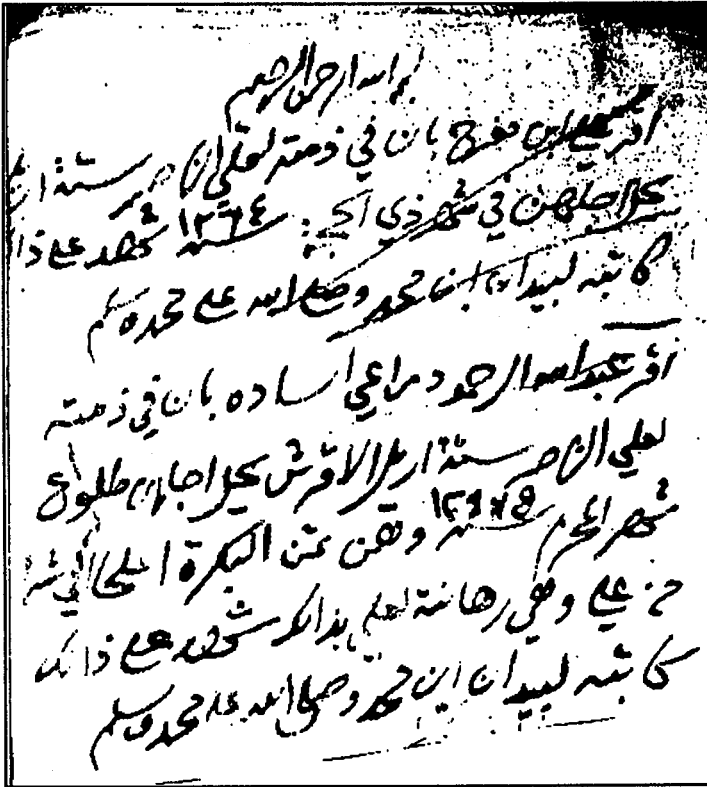 بسم الله الرحمن الرحيم
اقر علي ابن مفرح بان في ذمته لعلي الناصر ستة اريل
يحل اجلهن في شهر ذي الحجة سنة ١٢٦٤ شهد على ذالك
كاتبه لبيدان ابن محمد وصلى الله على محمد وسلم
اقر عبدالله الرحمود راعي اساده بان في ذمته
لعلي الناصر ستة اريل الا قرش يحل اجلهن طلوع
شهر المحرم سنة وهن ثمن البكرة الملحا الي شرا
من علي وهي رهانة لعلي بذالك شهد على ذالك
كاتبه لبيدان ابن محمد وصلى الله على محمد وسلم